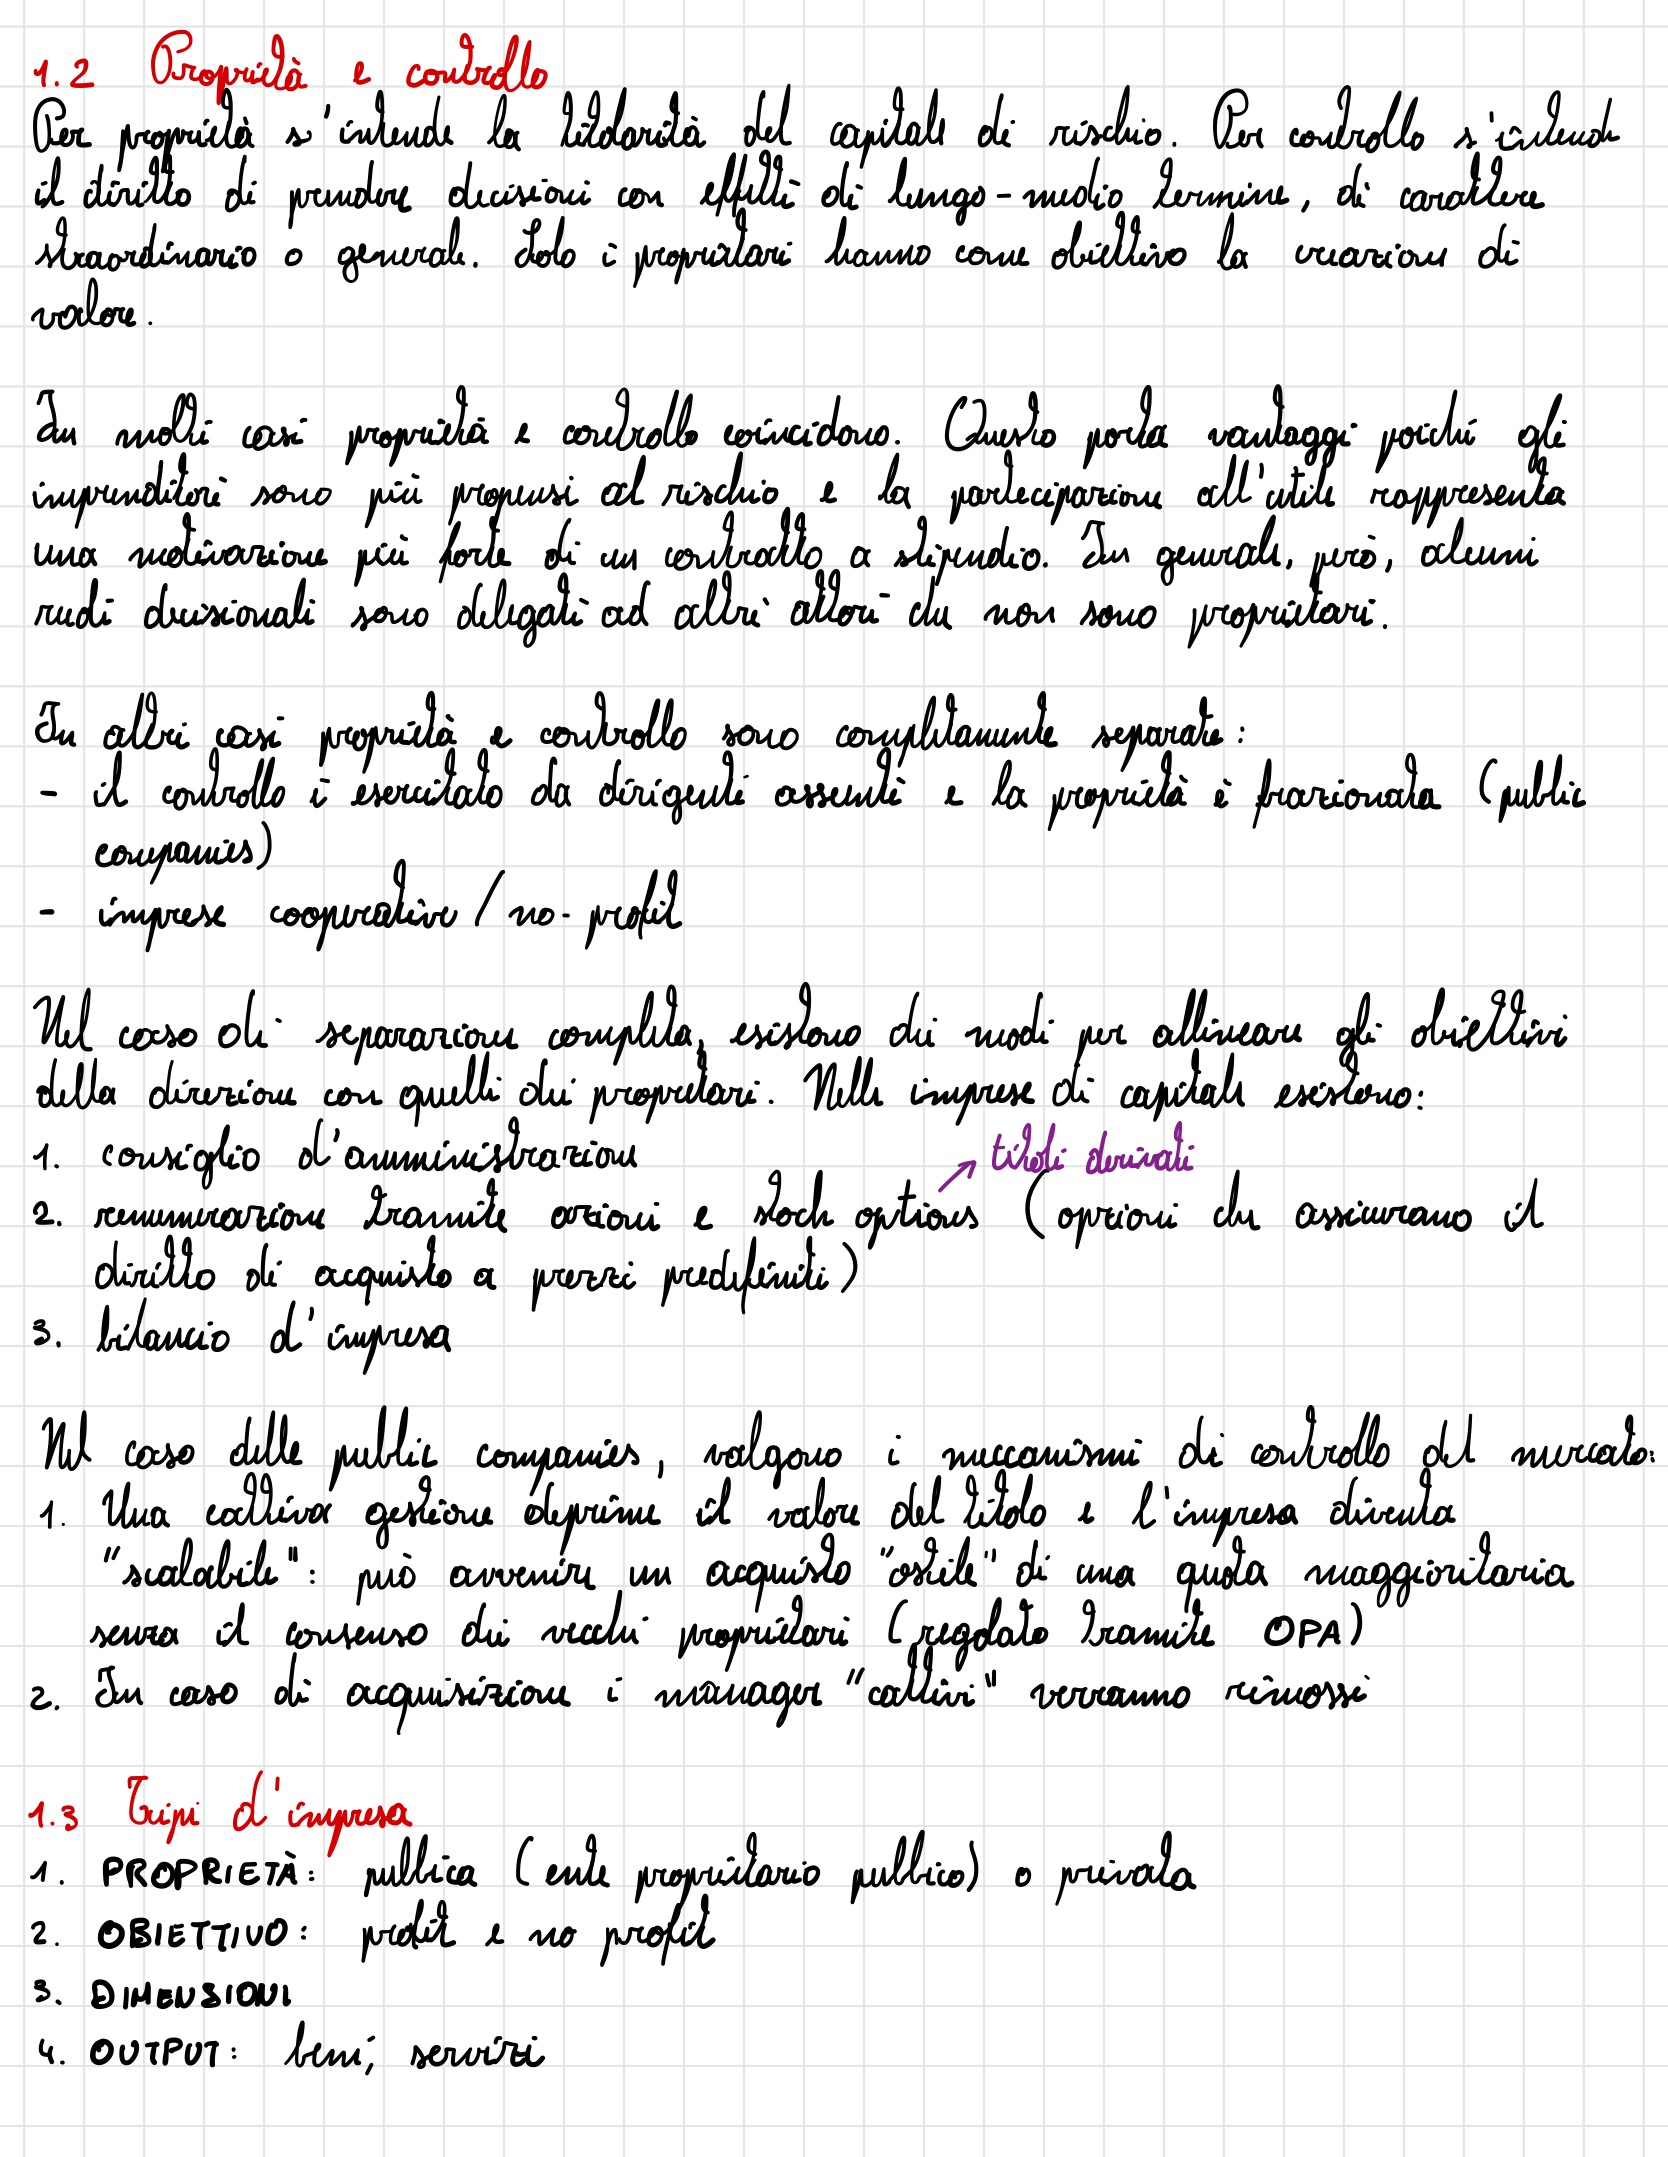 1.2 Proprietà e controllo
Per proprietà s'intende la titolarità del capitale di rischio. Per controllo s'intende
il diritto di prendere decisioni con effetti di lungo-medio termine, di carattere
straordinario o generale. Solo i proprietari hanno come obiettivo la creazione di
valore.
In molti casi proprietà e controllo coincidono. Questo porta vantaggi poiché gli
imprenditori sono più propensi al rischio e la partecipazione all'utile rappresenta
una motivazione più forte di un contratto a stipendio. In generale, però, alcuni
ruoli decisionali sono delegati ad altri attori che non sono proprietari.
In altri casi proprietà e controllo sono completamente separate:
- il controllo è esercitato da dirigenti assunti e la proprietà è frazionata (public
companies)
- imprese cooperative / no-profit
Nel caso di separazione completa, esistono dei modi per allineare gli obiettivi
della direzione con quelli dei proprietari. Nelle imprese di capitale esistono:
1. consiglio d'amministrazione
titoli derivati
2. renumerazione tramite azioni e stock options (opzioni che assicurano il
diritto di acquisto a prezzi predefiniti)
3. bilancio d'impresa
Nel caso delle public companies, valgono i meccanismi di controllo del mercato:
1. Una cattiva gestione deprime il valore del titolo e l'impresa diventa
"scalabile": può avvenire un acquisto "ostile" di una quota maggioritaria
senza il consenso dei vecchi proprietari (regolato tramite OPA)
2. In caso di acquisizione i manager "cattivi" verranno rimossi
1.3 Tipi d'impresa
1. PROPRIETÀ: pubblica (ente proprietario pubblico) o privata
2. OBIETTIVO: profit e no profit
3. DIMENSIONI
4. OUTPUT: beni, servizi